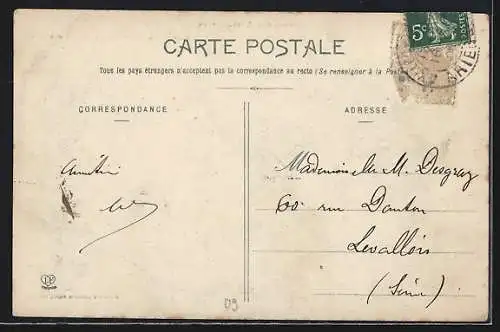 CARTE POSTALE
Tous les pays étrangers n'acceptent pas la correspondance au recto (Se renseigner à la Poste)
CORRESPONDANCE
ADRESSE
5c
Mademoiselle M. Desgraz
60 rue Danton
Levallois
(Seine)
09